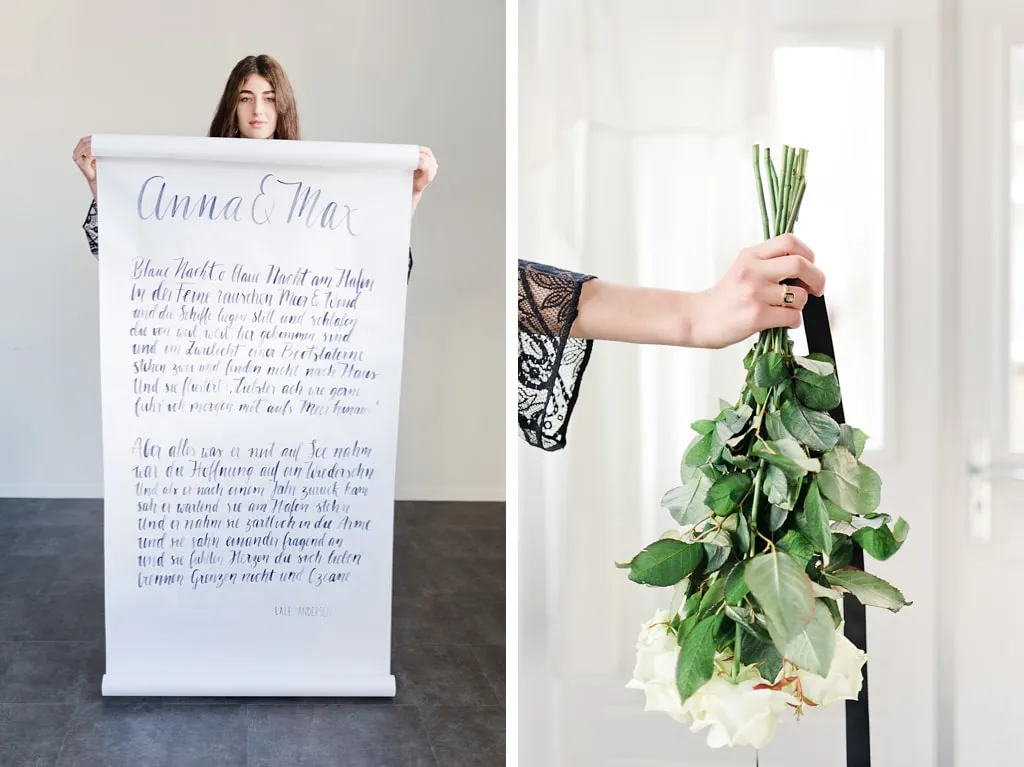 Anna & Max
Blaue Nacht o blaue Nacht am Hafen
In der Ferne rauschen Meer & Wind
und die Schiffe liegen still und schlafen
die von weit, weit her gekommen sind
und im Zwielicht einer Bootslaterne
stehen zwei und finden nicht nach Haus
Und sie flüstert: „Liebster ach wie gerne
führ ich morgen mit aufs Meer hinaus"
Aber alles was er mit auf See nahm
war die Hoffnung auf ein Wiedersehn
Und als er nach einem Jahr zurück kam
sah er wartend sie am Hafen stehn
Und er nahm sie zärtlich in die Arme
und sie sahn einander fragend an
und sie fühlten Herzen die sich lieben
trennen Grenzen nicht und Ozeane
LALE ANDERSEN